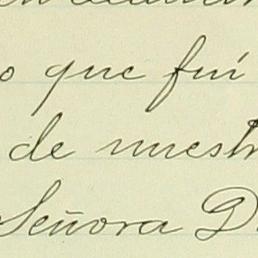 o que fuí
de nuestr
Señora D